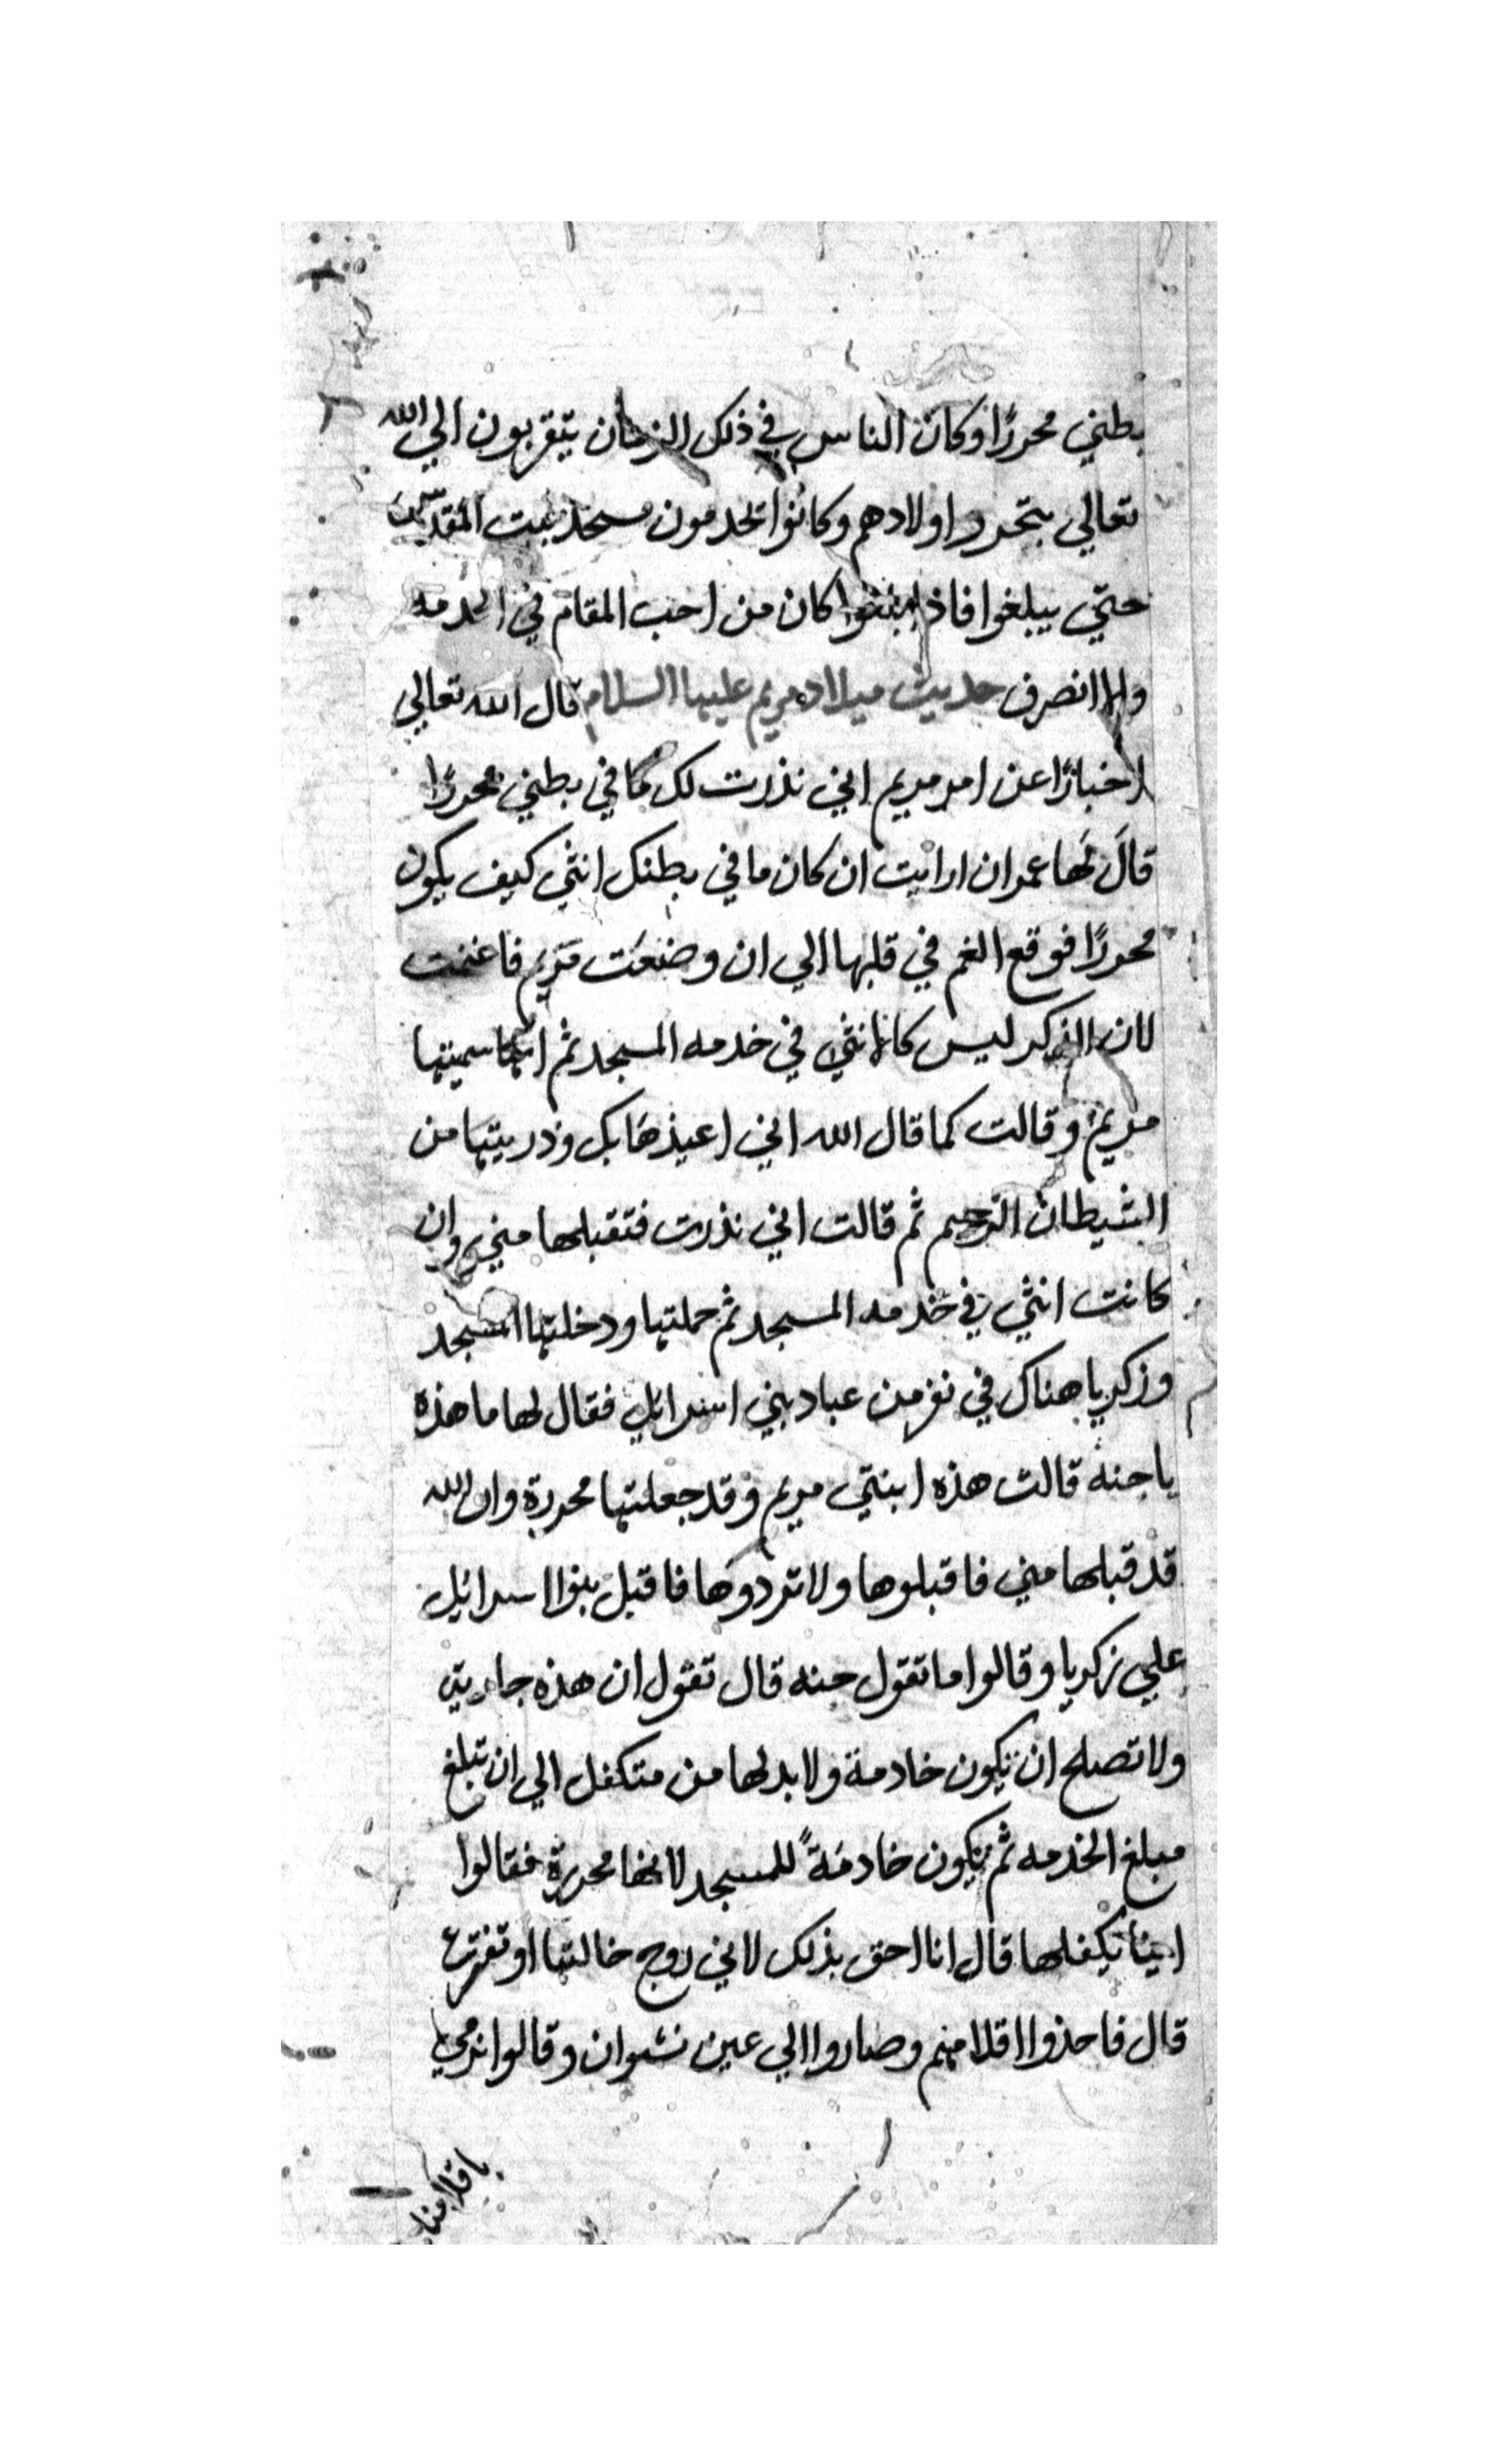 بطني محررًا وكان الناس في ذلك الزمان يتقربون الي الله
تعالي بتحرر اولادهم وكانوا تخدمون مسجد بيت المقدس
حتي يبلغوا فاذا بلغوا كان من احب المقام في الخدمه
والا انصرف حديث ميلاد مريم عليها السلام قال الله تعالي
اخبارًا عن امر مريم اني نذرت لك ما في بطني محررًا
قالَ لَها عمران ارايت ان كان ما في بطنك انثي كيف يكون
محررًا فوقع الغم في قلبها الي ان وضعَت مَريم فاغتمت
لان الذكر ليس كالانثي في خدمه المسجد ثم انها سميتها
مريم وقالت كما قال الله اني اعيذهَا بك وذريتها من
الشيطان الرجيم ثم قالت اني نذرت فتقبلها مني وان
كانت انثي في خدمه المسجد ثم حملتها ودخلتها المسجد
وزكريا هناك في نفر من عباد بني اسرائيل فقال لها ما هذه
يا حنه قالت هذه ابنتي مريم وقد جعلتها محررة وان الله
قد قبلها مني فاقبلوها ولا تردوهَا فاقبل بنوا اسرائيل
علي زكريا وقالوا ما تقول حنه قال تقول ان هذه جاريتي
ولا تصلح ان تكون خادمة ولا بد لها من متكفل الي ان تبلغ
مبلغ الخدمه ثم تكون خادمَةً للمسجد لانها محررة فقالوا
اينا يكفلها قال انا احق بذلك لاني زوج خالتها او تقترع
قال فاخذوا اقلامهم وصاروا الي عين نشوان وقالوا نرمي
باقلامنا